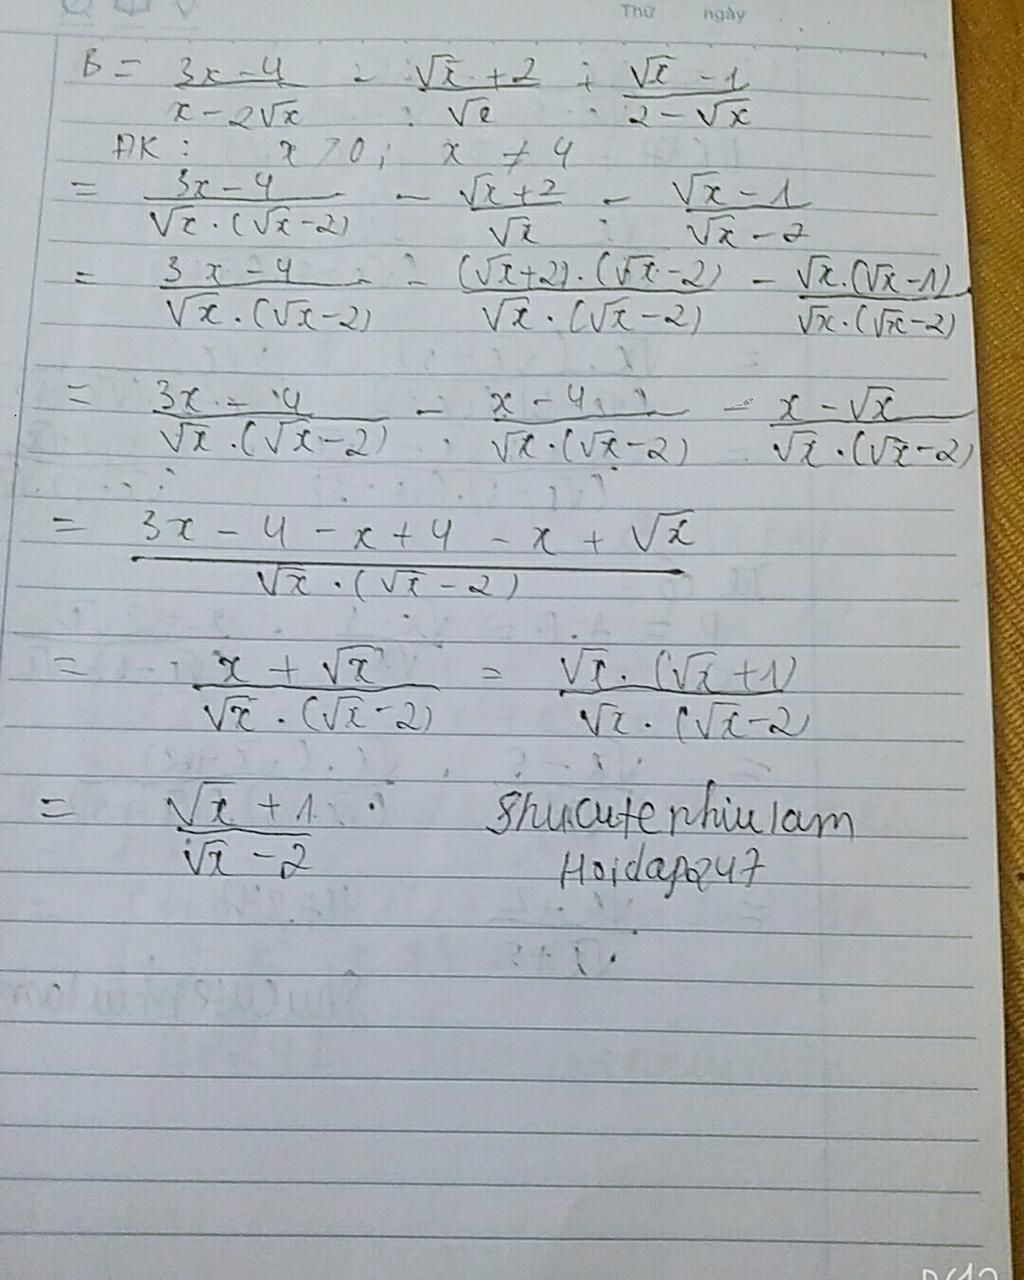 Thứ ngày
B = \frac{3x-4}{x-2\sqrt{x}} - \frac{\sqrt{x}+2}{\sqrt{x}} + \frac{\sqrt{x}-1}{2-\sqrt{x}}
ĐK : x > 0 ; x ≠ 4
= \frac{3x-4}{\sqrt{x}.(\sqrt{x}-2)} - \frac{\sqrt{x}+2}{\sqrt{x}} - \frac{\sqrt{x}-1}{\sqrt{x}-2}
= \frac{3x-4}{\sqrt{x}.(\sqrt{x}-2)} - \frac{(\sqrt{x}+2).(\sqrt{x}-2)}{\sqrt{x}.(\sqrt{x}-2)} - \frac{\sqrt{x}.(\sqrt{x}-1)}{\sqrt{x}.(\sqrt{x}-2)}
= \frac{3x-4}{\sqrt{x}.(\sqrt{x}-2)} - \frac{x-4}{\sqrt{x}.(\sqrt{x}-2)} - \frac{x-\sqrt{x}}{\sqrt{x}.(\sqrt{x}-2)}
= \frac{3x-4-x+4-x+\sqrt{x}}{\sqrt{x}.(\sqrt{x}-2)}
= \frac{x+\sqrt{x}}{\sqrt{x}.(\sqrt{x}-2)} = \frac{\sqrt{x}.(\sqrt{x}+1)}{\sqrt{x}.(\sqrt{x}-2)}
= \frac{\sqrt{x}+1}{\sqrt{x}-2}
Shucutephiulam
Hoidap247